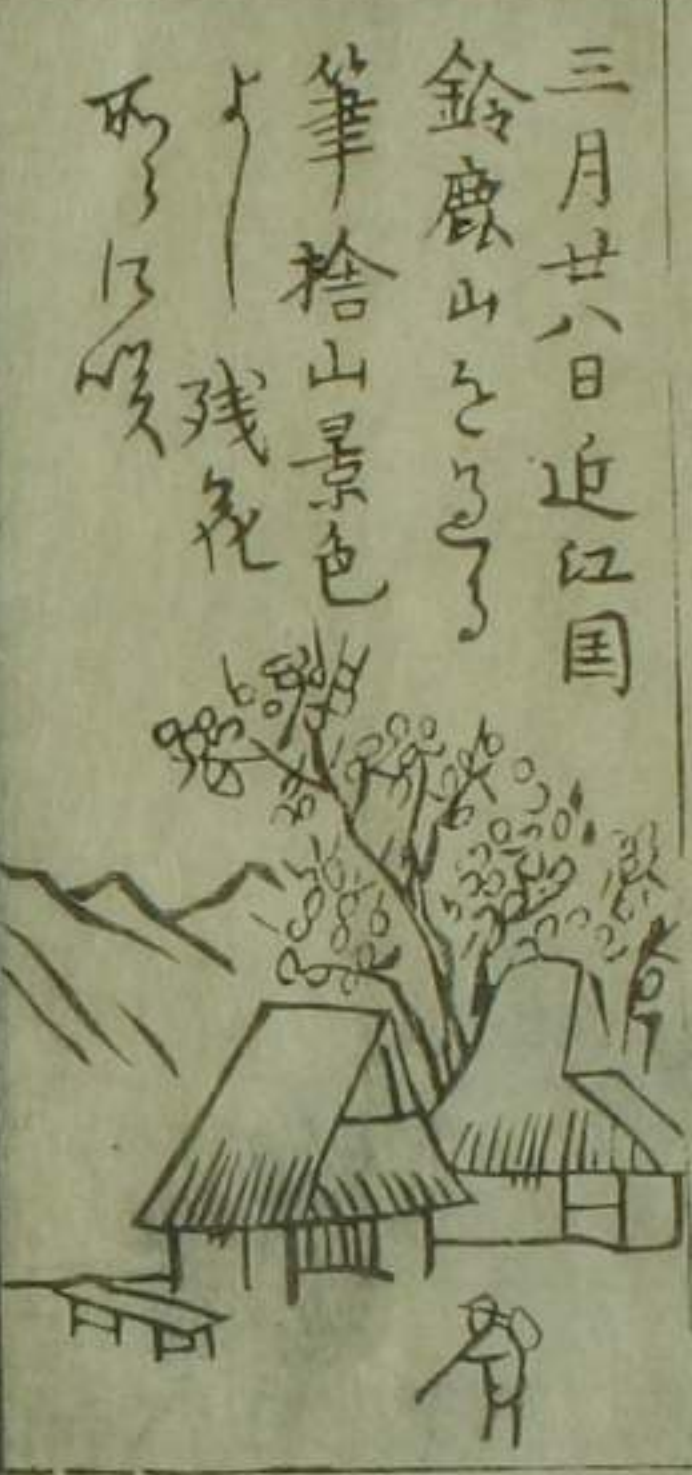 三月廿八日近江国
鈴鹿山を
筆捨山景色
よし 残花
所々に咲